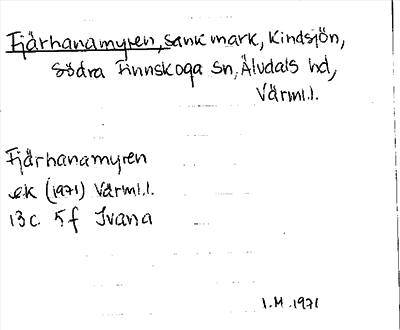 Fjärhanamyren, sank mark, Kindsjön,
Södra Finnskoga sn, Älvdals hd,
Värml.l.
Fjärhanamyren
ek (1971) Värml.l.
13c. 5f Ivana
I.M. 1971